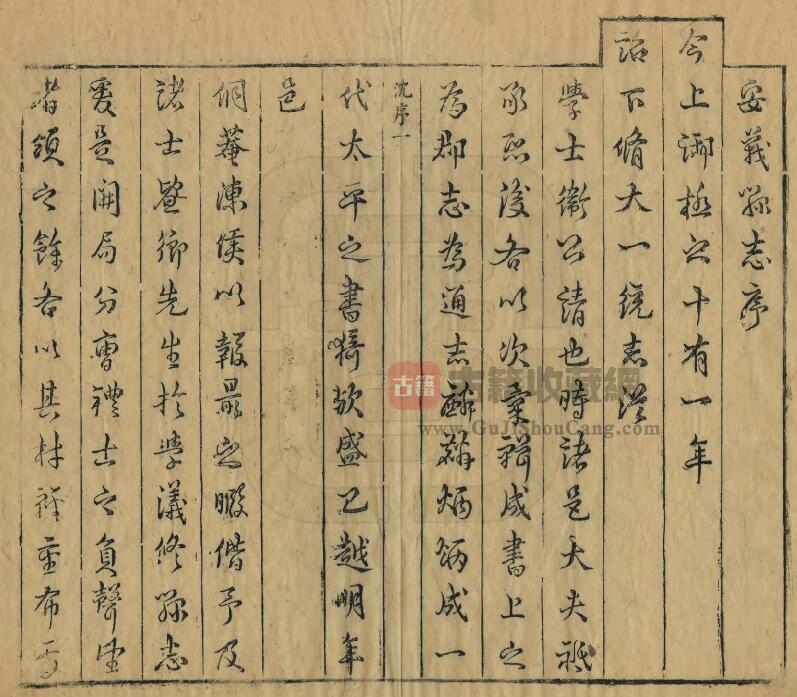 安義縣志序
今上御極之十有一年
詔下脩大一統志從
學士衞公請也時諸邑大夫祗
承恐後各以次彙輯成書上之
為郡志為通志麟麟炳炳成一
沈序一
代太平之書猗歟盛已越明年
邑
侗菴陳侯以報最之暇偕予及
諸士暨鄉先生於學議修縣志
爰是開局分曹禮士之負聲望
者領之餘各以其材
古籍
古籍收藏網
www.GuJiShouCang.com